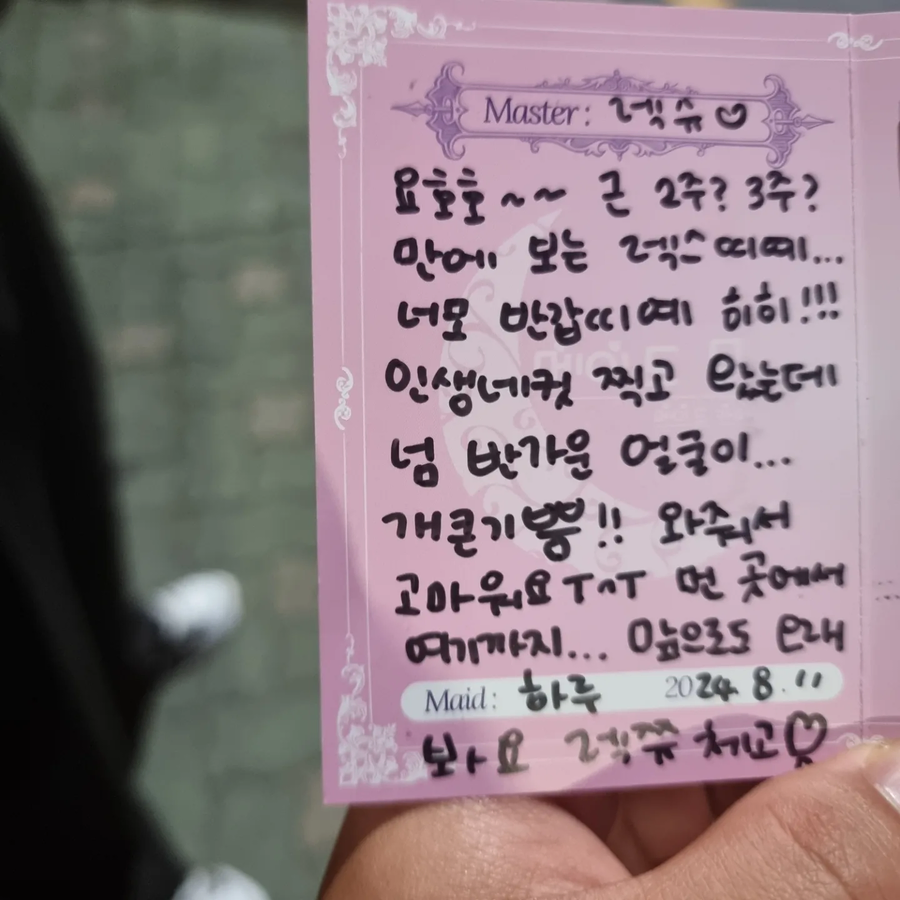 Master: 렉슈♡
요호호~~ 근 2주? 3주?
만에 보는 렉스띠띠...
너모 반갑띠예 히히!!!
인생네컷 찍고 왔는데
넘 반가운 얼굴이...
개큰기쁨!! 와줘서
고마워요TㅅT 먼 곳에서
여기까지... 앞으로도 오래
Maid: 하루 2024. 8. 11
봐요 렉쮸 최고♡